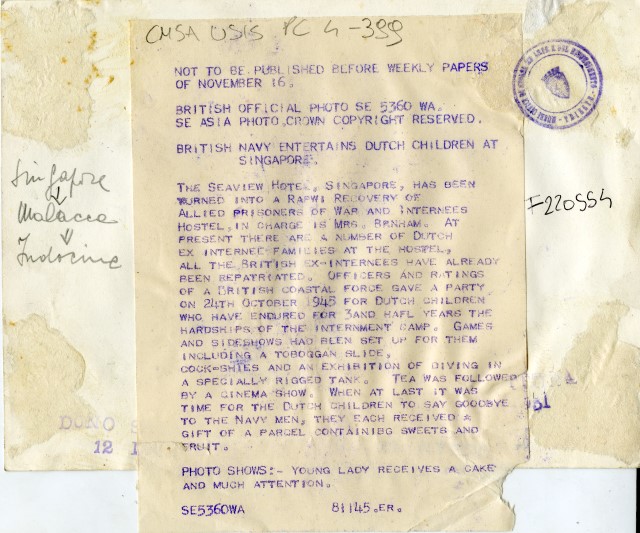 CMSA USIS PC 4-399
NOT TO BE PUBLISHED BEFORE WEEKLY PAPERS
OF NOVEMBER 16.
BRITISH OFFICIAL PHOTO SE 5360 WA.
SE ASIA PHOTO CROWN COPYRIGHT RESERVED.
BRITISH NAVY ENTERTAINS DUTCH CHILDREN AT
SINGAPORE.
THE SEAVIEW HOTEL, SINGAPORE, HAS BEEN
TURNED INTO A RAPWI RECOVERY OF
ALLIED PRISONERS OF WAR AND INTERNEES
HOSTEL, IN CHARGE IS MRS. BENHAM. AT
PRESENT THERE ARE A NUMBER OF DUTCH
EX INTERNEE FAMILIES AT THE HOSTEL,
ALL THE BRITISH EX-INTERNEES HAVE ALREADY
BEEN REPATRIATED. OFFICERS AND RATINGS
OF A BRITISH COASTAL FORCE GAVE A PARTY
ON 24TH OCTOBER 1945 FOR DUTCH CHILDREN
WHO HAVE ENDURED FOR 3AND HAFL YEARS THE
HARDSHIPS OF THE INTERNMENT CAMP. GAMES
AND SIDESHOWS HAD BEEN SET UP FOR THEM
INCLUDING A TOBOGGAN SLIDE,
COCK-SHIES AND AN EXHIBITION OF DIVING IN
A SPECIALLY RIGGED TANK. TEA WAS FOLLOWED
BY A CINEMA SHOW. WHEN AT LAST IT WAS
TIME FOR THE DUTCH CHILDREN TO SAY GOODBYE
TO THE NAVY MEN, THEY EACH RECEIVED A
GIFT OF A PARCEL CONTAINIBG SWEETS AND
FRUIT.
PHOTO SHOWS:- YOUNG LADY RECEIVES A CAKE
AND MUCH ATTENTION.
SE5360WA 81145.ER.
Singapore
Malacca
Indocina
F220554
12